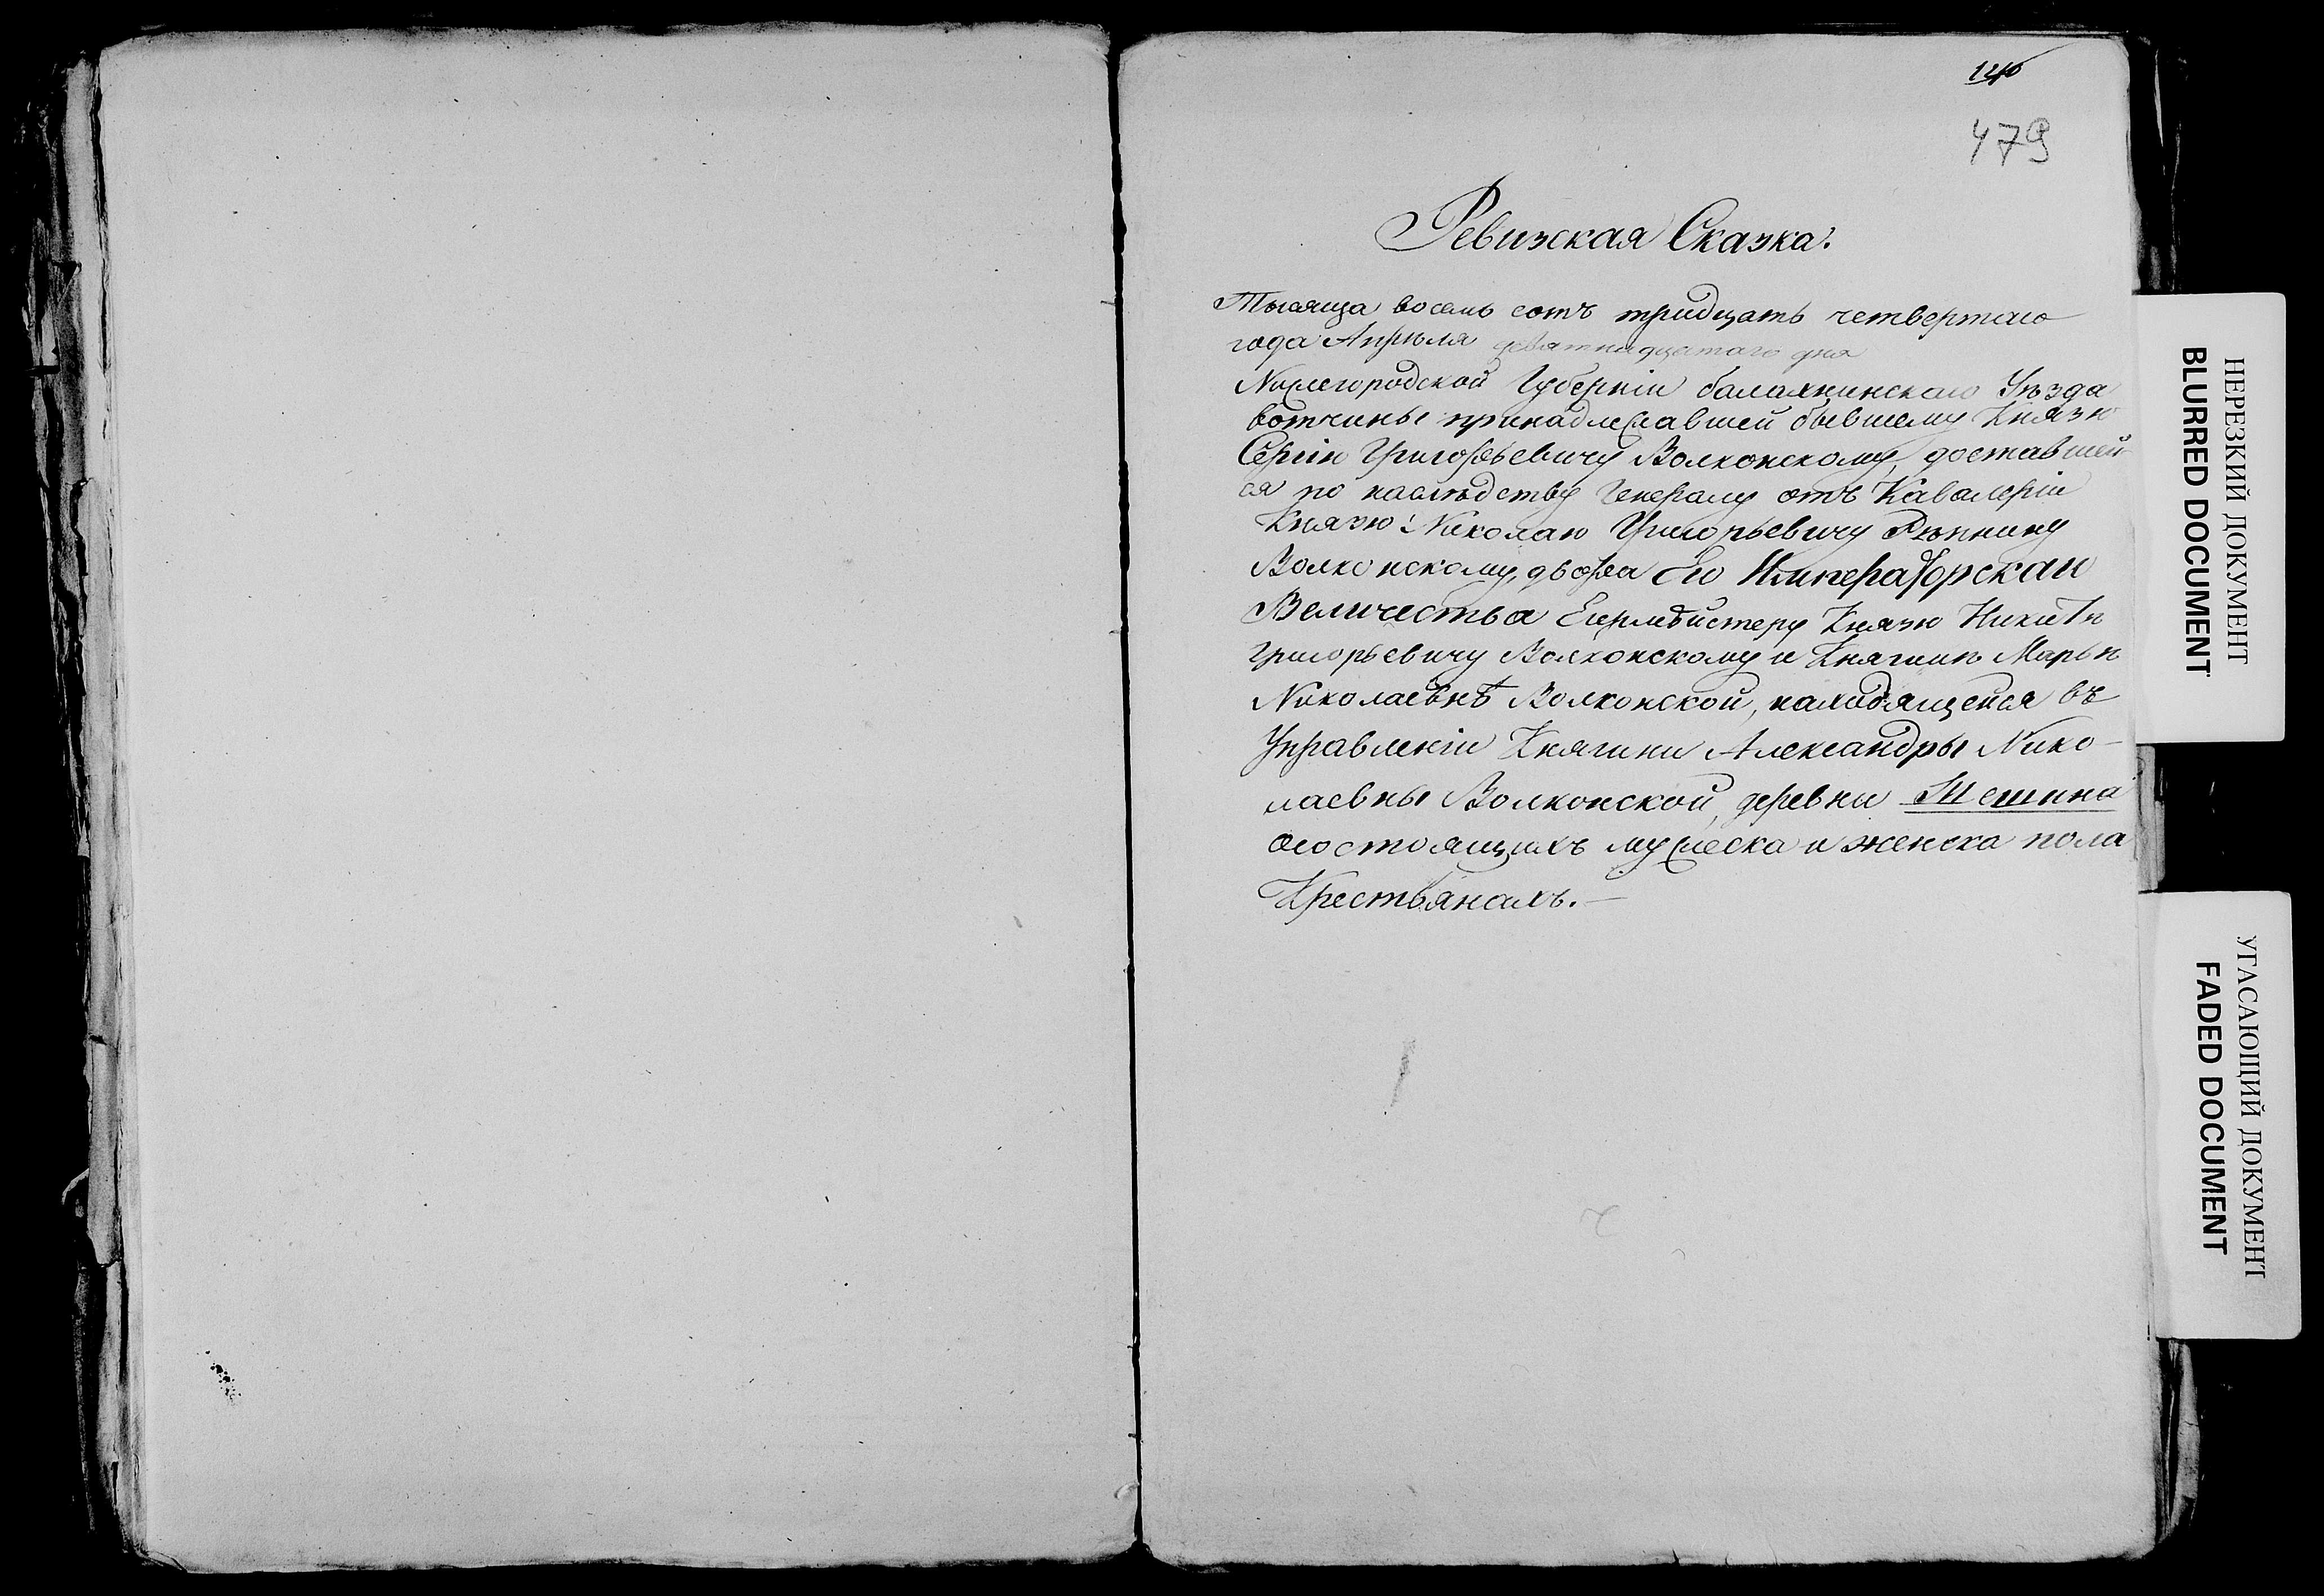 140
479
Ревизская Сказка.
Тысяща восемь сотъ тридцать четвертаго
года Апрѣля девятнадцатаго дня
Нижегородской Губерніи балахнинскаго Уѣзда
вотчины принадлежавшей бывшему Князю
Сергію Григорьевичу Волконскому, доставшей
ся по наслѣдству Генералу отъ Кавалеріи
Князю Николаю Григорьевичу Рѣпнину
Волконскому, двора Его Императорскаго
Величества Егермейстеру Князю Никитѣ
Григорьевичу Волконскому и Княгинѣ Марьѣ
Николаевнѣ Волконской, находящейся въ
Управленіи Княгини Александры Нико-
лаевны Волконской, деревни Шешина
о состоящихъ мужеска и женска пола
Крестьянахъ.—
НЕРЕЗКИЙ ДОКУМЕНТ
BLURRED DOCUMENT
УГАСАЮЩИЙ ДОКУМЕНТ
FADED DOCUMENT